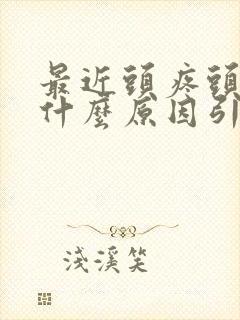 最近頭疼頭
什麼原因引
淺溪笑